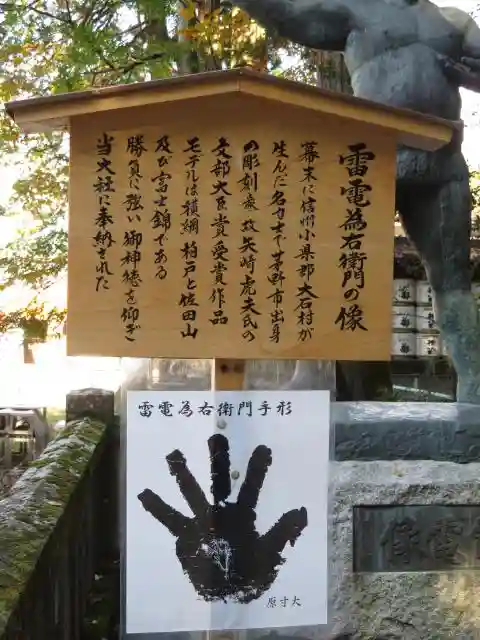 雷電為右衛門の像
幕末に信州小県郡大石村が
生んだ名力士で茅野市出身
の彫刻家故矢崎虎夫氏の
文部大臣賞受賞作品
モデルは横綱柏戸と佐田山
及び富士錦である
勝負に強い御神徳を仰ぎ
当大社に奉納された
雷電為右衛門手形
原寸大
像電雷